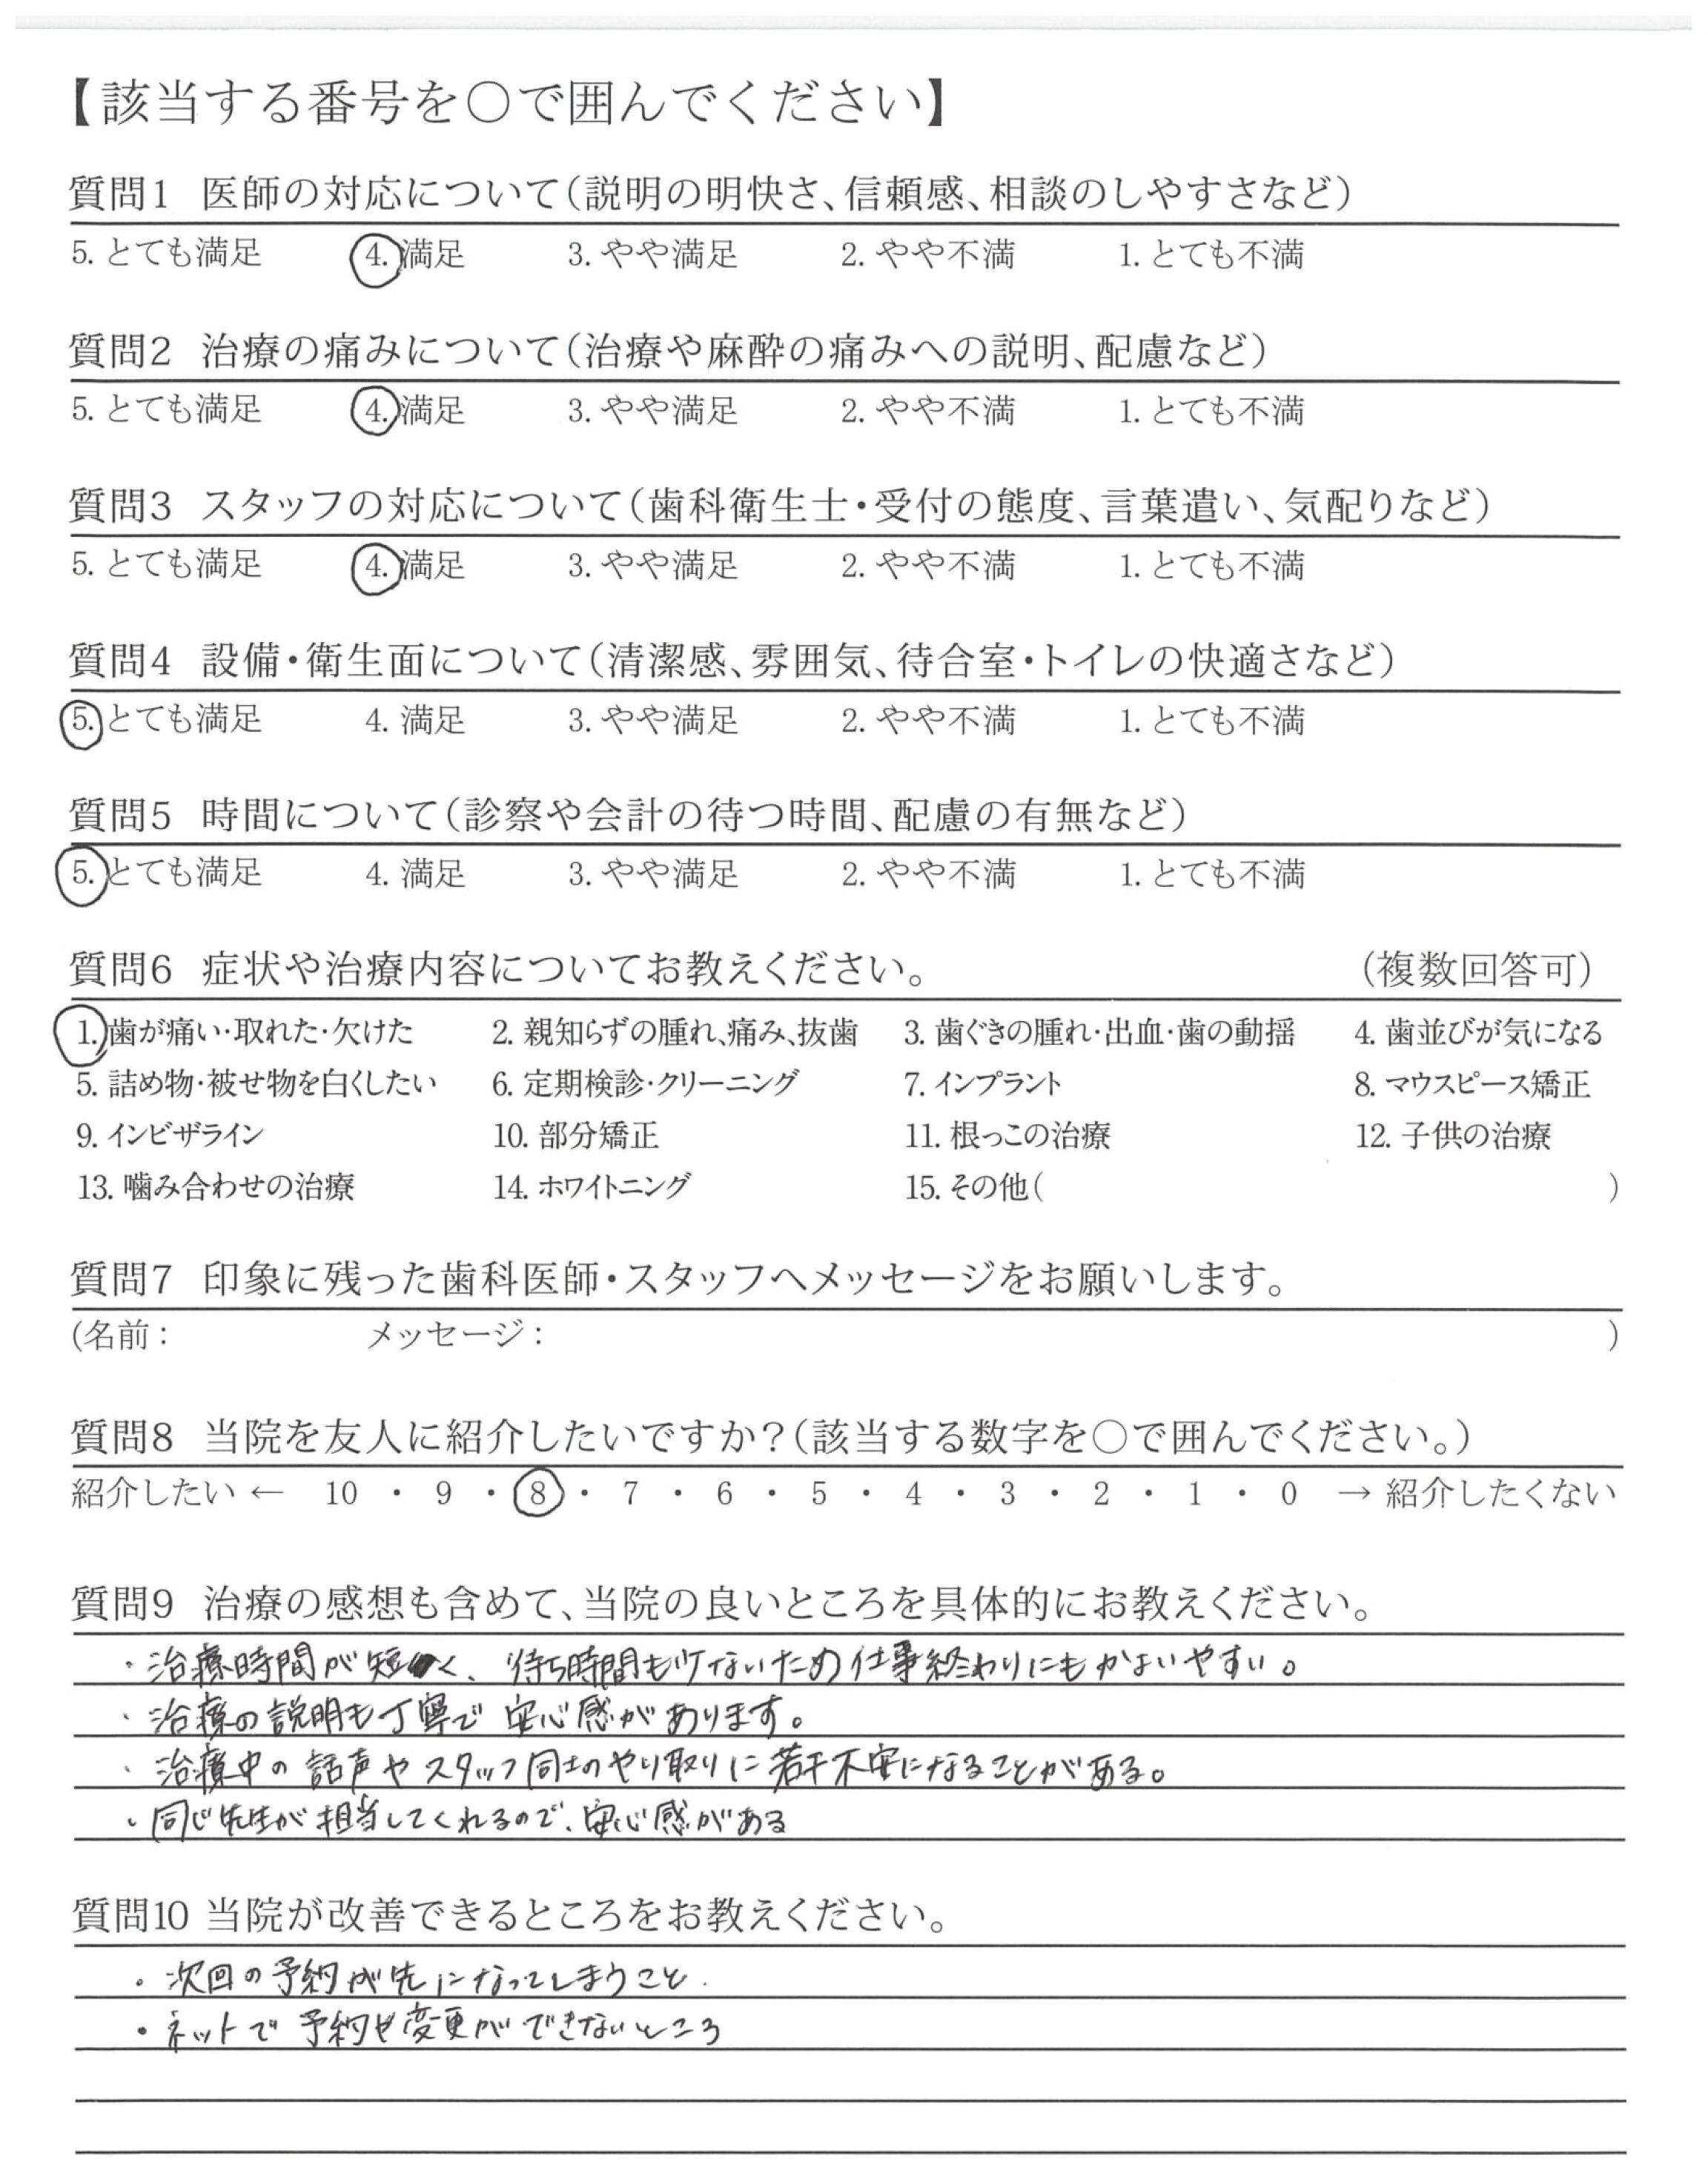 【該当する番号を〇で囲んでください】
質問1 医師の対応について(説明の明快さ、信頼感、相談のしやすさなど)
5. とても満足 4. 満足 3. やや満足 2. やや不満 1. とても不満
質問2 治療の痛みについて(治療や麻酔の痛みへの説明、配慮など)
5. とても満足 4. 満足 3. やや満足 2. やや不満 1. とても不満
質問3 スタッフの対応について(歯科衛生士・受付の態度、言葉遣い、気配りなど)
5. とても満足 4. 満足 3. やや満足 2. やや不満 1. とても不満
質問4 設備・衛生面について(清潔感、雰囲気、待合室・トイレの快適さなど)
5. とても満足 4. 満足 3. やや満足 2. やや不満 1. とても不満
質問5 時間について(診察や会計の待つ時間、配慮の有無など)
5. とても満足 4. 満足 3. やや満足 2. やや不満 1. とても不満
質問6 症状や治療内容についてお教えください。 (複数回答可)
1. 歯が痛い・取れた・欠けた 2. 親知らずの腫れ、痛み、抜歯 3. 歯ぐきの腫れ・出血・歯の動揺 4. 歯並びが気になる
5. 詰め物・被せ物を白くしたい 6. 定期検診・クリーニング 7. インプラント 8. マウスピース矯正
9. インビザライン 10. 部分矯正 11. 根っこの治療 12. 子供の治療
13. 噛み合わせの治療 14. ホワイトニング 15. その他( )
質問7 印象に残った歯科医師・スタッフへメッセージをお願いします。
(名前: メッセージ: )
質問8 当院を友人に紹介したいですか?(該当する数字を〇で囲んでください。)
紹介したい ← 10 ・ 9 ・ 8 ・ 7 ・ 6 ・ 5 ・ 4 ・ 3 ・ 2 ・ 1 ・ 0 → 紹介したくない
質問9 治療の感想も含めて、当院の良いところを具体的にお教えください。
・治療時間が短く、待ち時間も少ないため仕事終わりにもかよいやすい。
・治療の説明も丁寧で安心感があります。
・治療中の話声やスタッフ同士のやり取りに若干不安になることがある。
・同じ先生が担当してくれるので、安心感がある
質問10 当院が改善できるところをお教えください。
・次回の予約が先になってしまうこと.
・ネットで予約や変更ができないところ